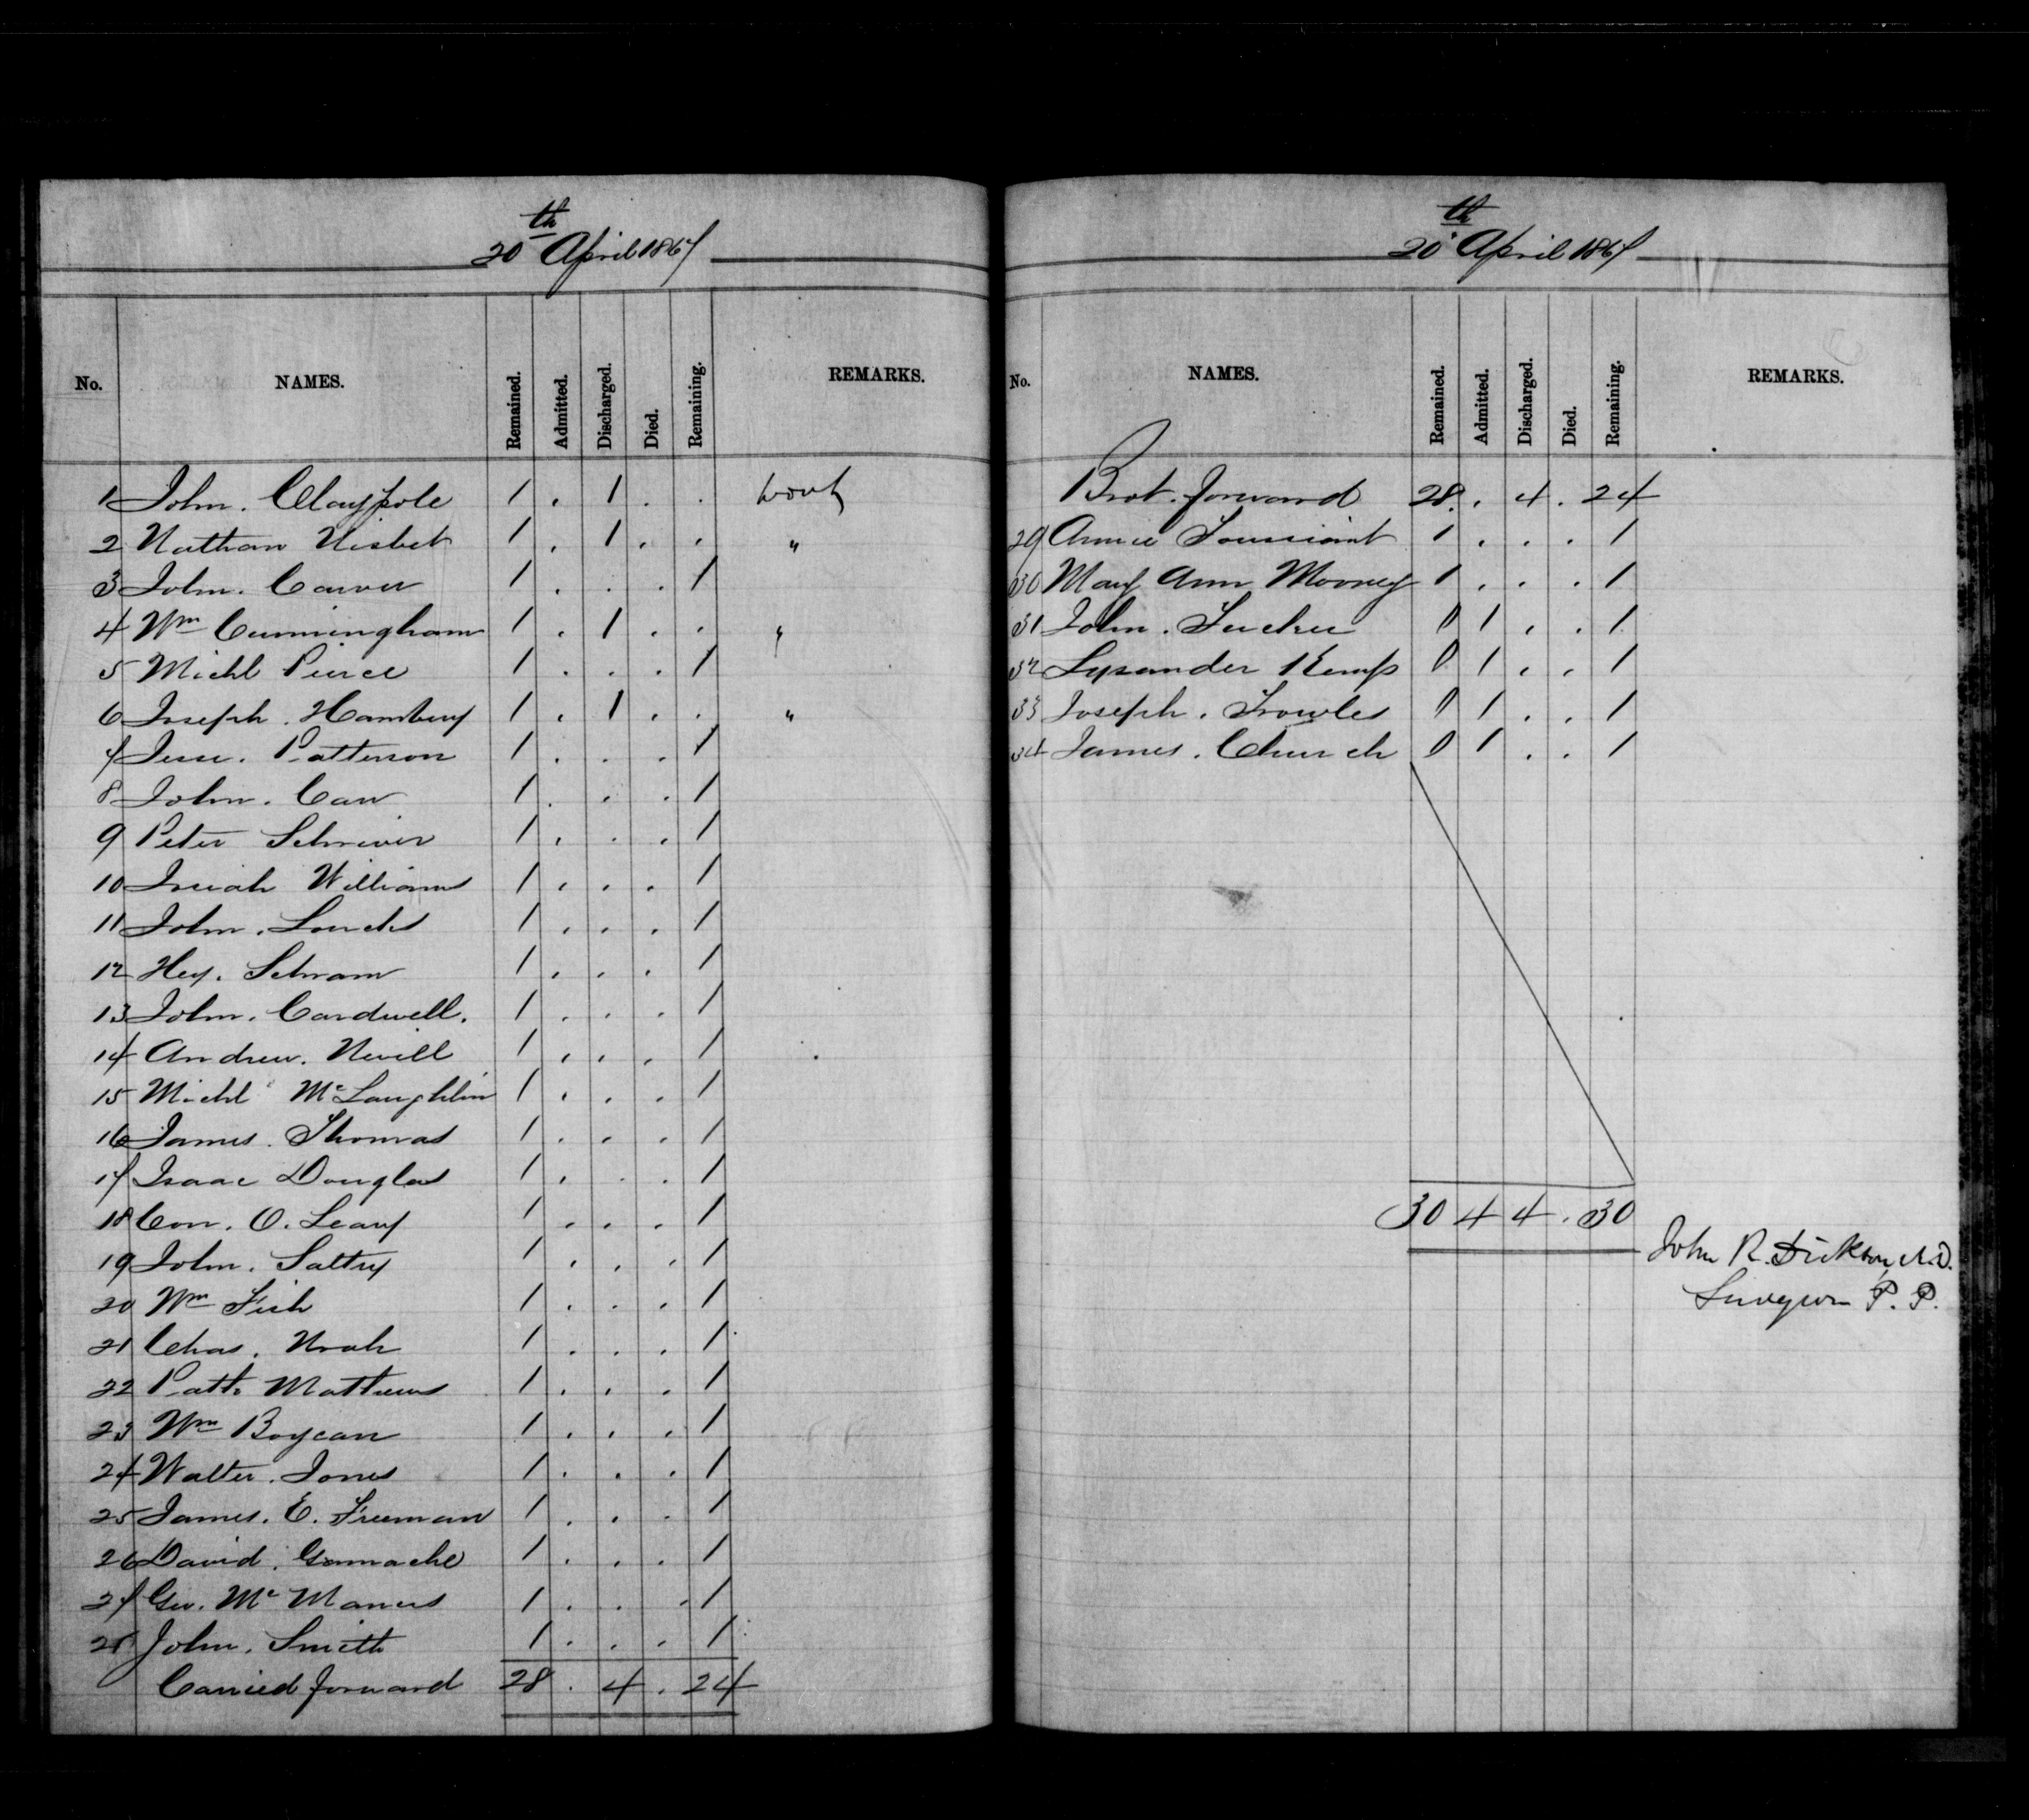 20th April 1867
No. NAMES. Remained. Admitted. Discharged. Died. Remaining. REMARKS.
1 John. Claypole 1 . 1 . . work
2 Nathan Nisbet 1 . 1 . . "
3 John. Carver 1 . . . 1
4 Wm Cunningham 1 . 1 . . "
5 Michl Pierce 1 . . . 1
6 Joseph. Hambury 1 . 1 . . "
7 Jesse. Patterson 1 . . . 1
8 John. Carr 1 . . . 1
9 Peter Schriver 1 . . . 1
10 Isiah Williams 1 . . . 1
11 John. Loucks 1 . . . 1
12 Hey. Schram 1 . . . 1
13 John. Cardwell. 1 . . . 1
14 Andrew. Nevill 1 . . . 1
15 Michl McLaughlin 1 . . . 1
16 James. Thomas 1 . . . 1
17 Isaac Douglas 1 . . . 1
18 Con. O. Leary 1 . . . 1
19 John. Saltry 1 . . . 1
20 Wm Fish 1 . . . 1
21 Chas. Noah 1 . . . 1
22 Patk Mathews 1 . . . 1
23 Wm Boycan 1 . . . 1
24 Walter. Jones 1 . . . 1
25 James. E. Freeman 1 . . . 1
26 David. Gamache 1 . . . 1
27 Geo. McManus 1 . . . 1
28 John. Smith 1 . . . 1
Carried forward 28 . 4 . 24
20th April 1867
No. NAMES. Remained. Admitted. Discharged. Died. Remaining. REMARKS.
Brot. forward 28 . 4 . 24
29 Annie Toussiant 1 . . . 1
30 Mary Ann Mooney 1 . . . 1
31 John. Tucker 0 1 . . 1
32 Lysander Kemp 0 1 . . 1
33 Joseph. Trowles 0 1 . . 1
34 James. Church 0 1 . . 1
30 4 4 . 30
John R. Dickson, M.D.
Surgeon P. P.